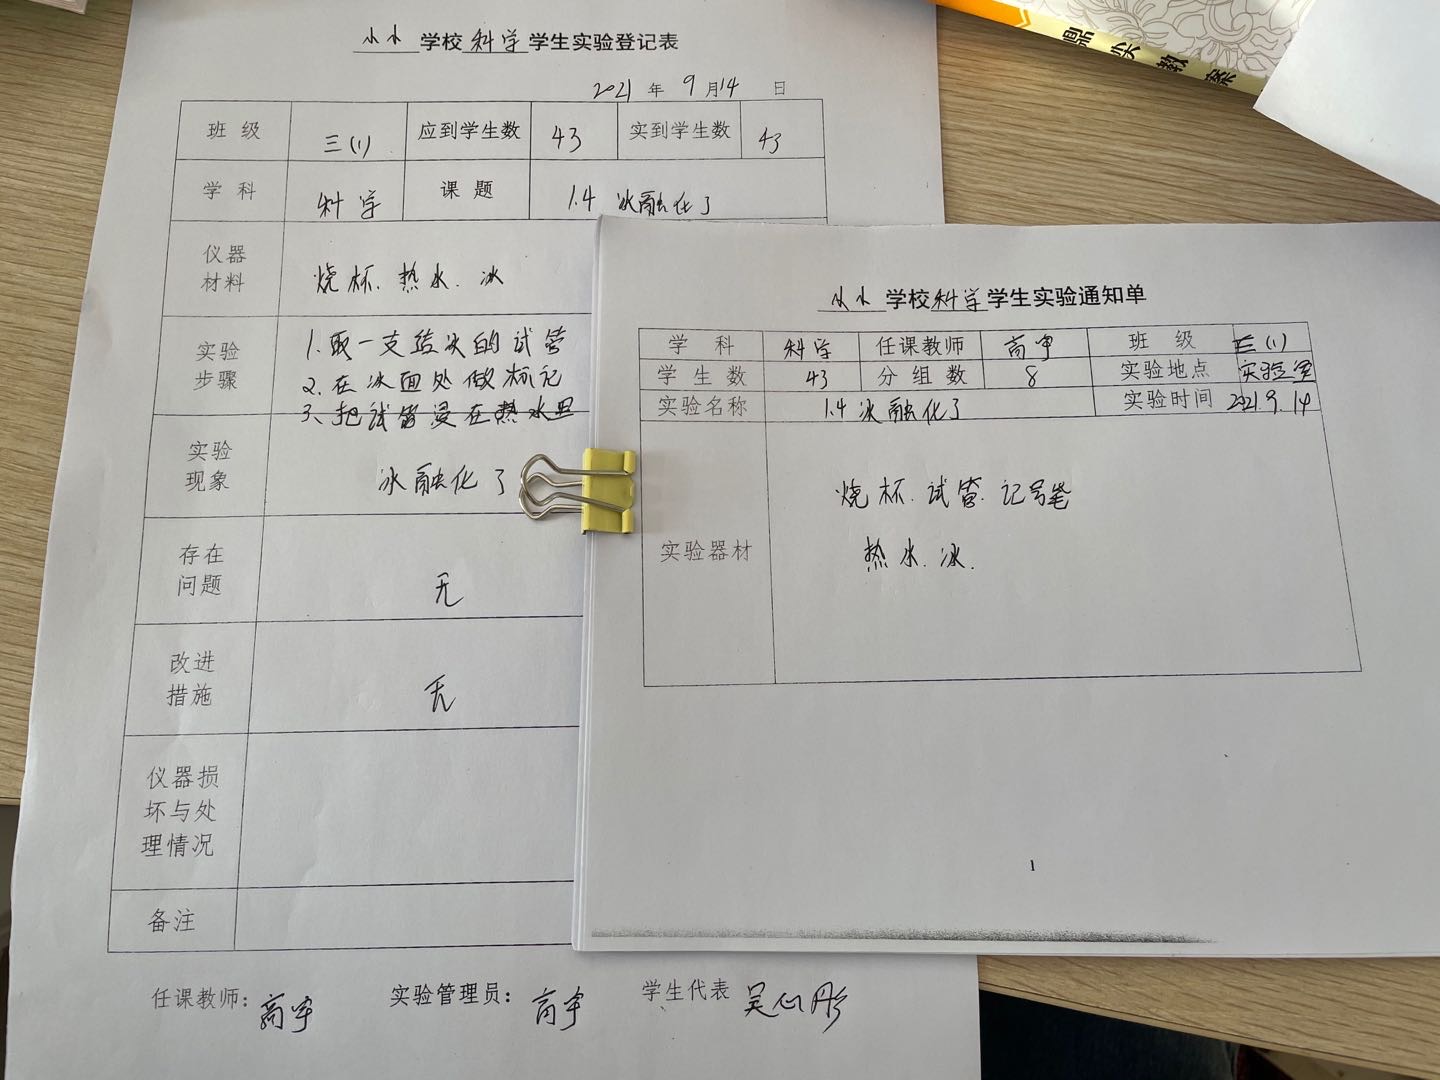 小小学校科学学生实验登记表
2021年9月14日
班级 三(1) 应到学生数 43 实到学生数 43
学科 科学 课题 1.4 冰融化了
仪器材料 烧杯、热水、冰
实验步骤 1.取一支结冰的试管
2.在冰面处做标记
3、把试管浸在热水里
实验现象 冰融化了
存在问题 无
改进措施 无
仪器损坏与处理情况
备注
任课教师: 高宇 实验管理员: 高宇 学生代表 吴心彤
小小学校科学学生实验通知单
学科 科学 任课教师 高宇 班级 三(1)
学生数 43 分组数 8 实验地点 实验室
实验名称 1.4 冰融化了 实验时间 2021.9.14
实验器材 烧杯、试管、记号笔
热水、冰.
1
鼎尖教案